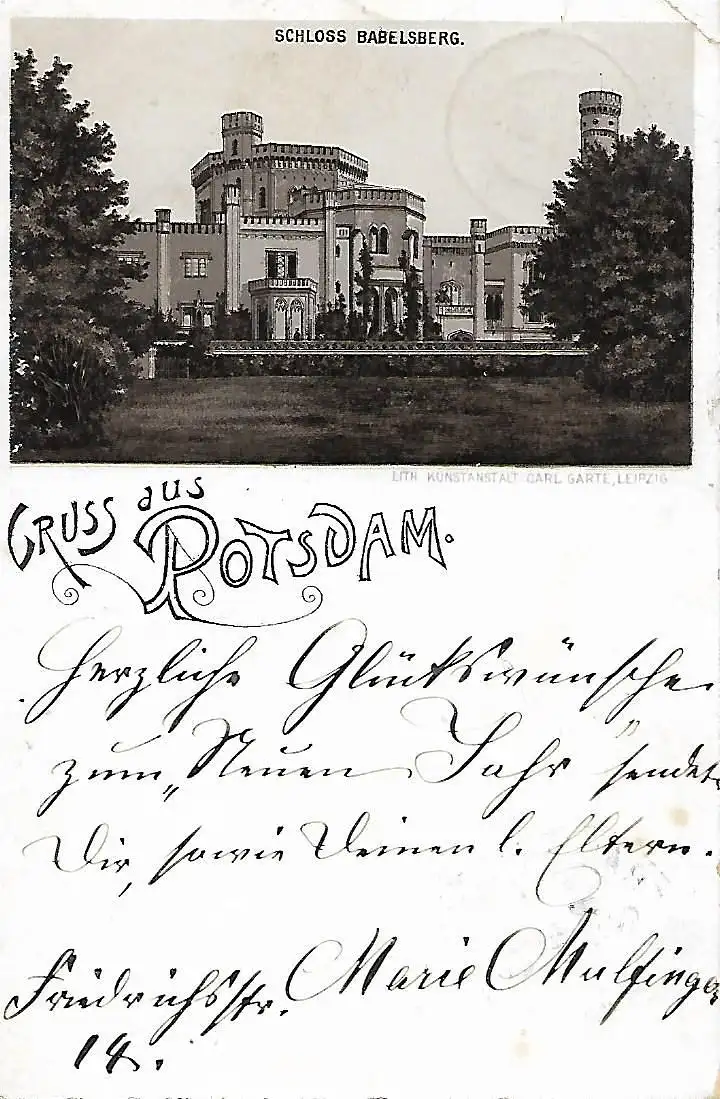 SCHLOSS BABELSBERG.
LITH. KUNSTANSTALT CARL GARTE, LEIPZIG
GRUSS aus
POTSDAM.
Herzliche Glückswünsche
zum „Neuen Jahr“ sendet
Dir, sowie Deinen l. Eltern.
Marie Mulfinger
Friedrichsstr.
18.